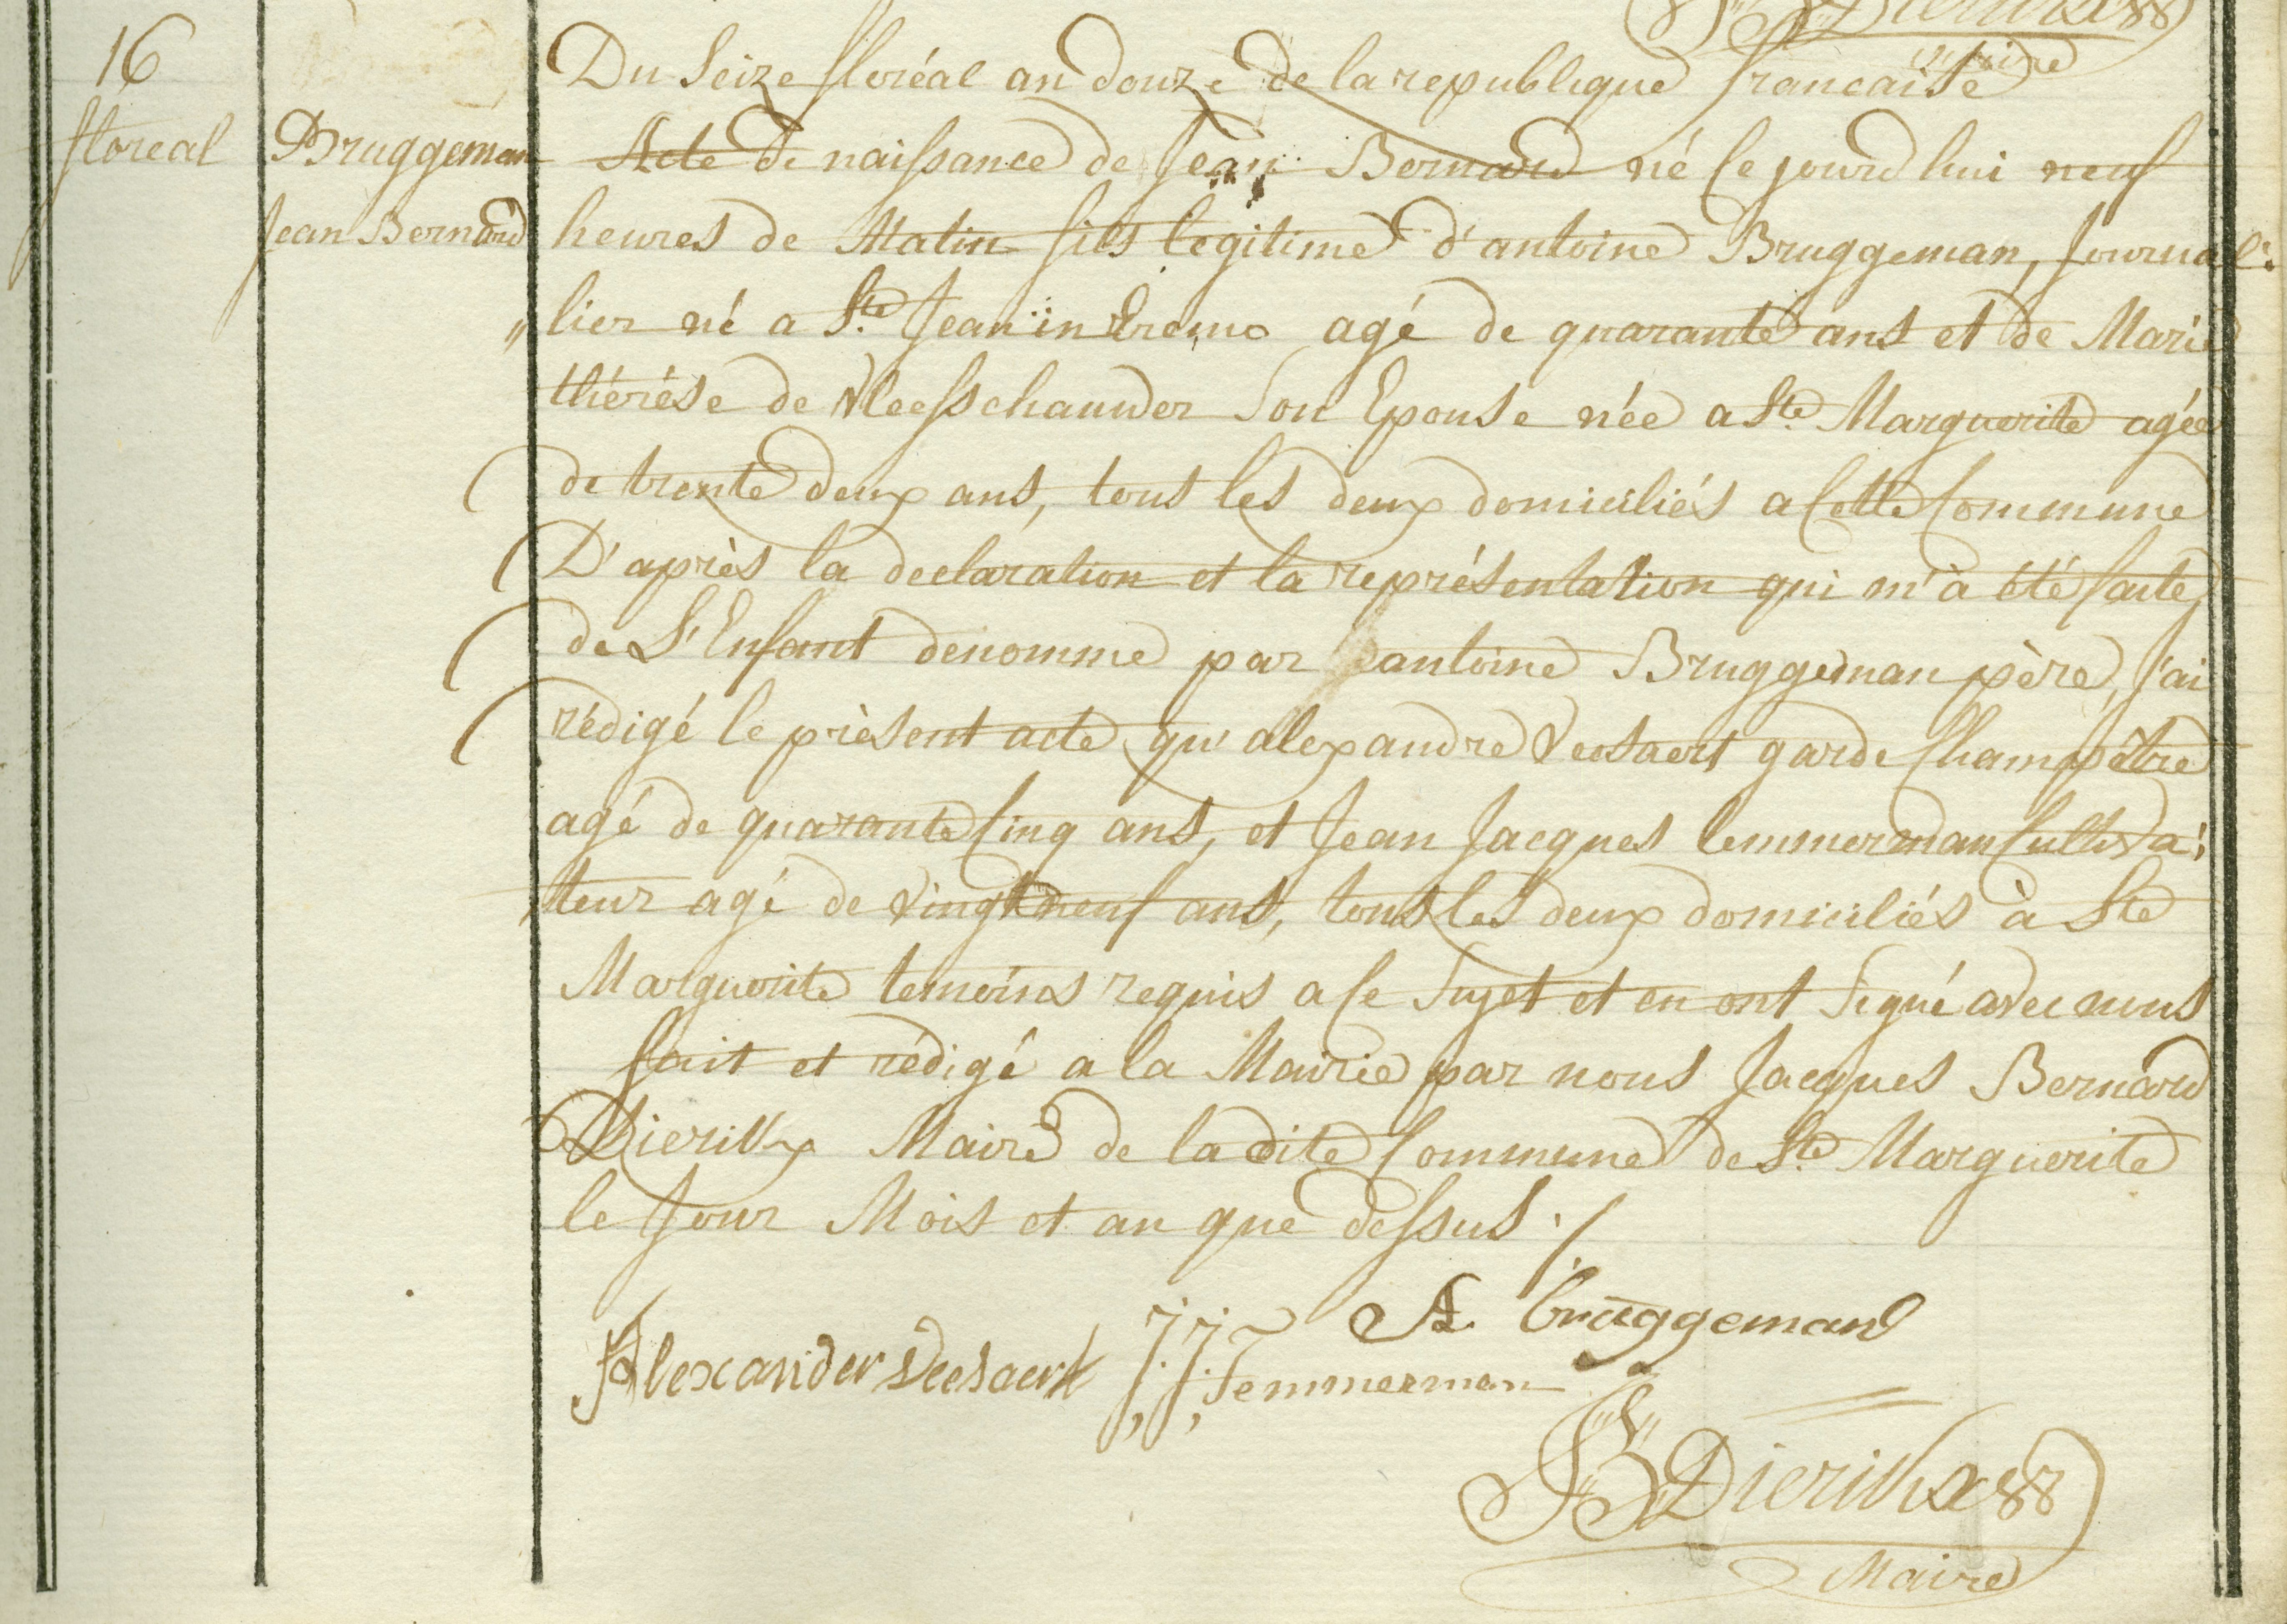 16
floreal
Bruggeman
Jean Bernard
Du Seize floréal an douze de la republique francaise
Acte de naissance de Jean Bernard né ce jourd'hui neuf
heures de Matin fils legitime d'antoine Bruggeman, Journal:
„lier né a St. Jean in Eremo agé de quarante ans et de Marie
thérése de Vleesschauwer Son Epouse née a Ste Marguerite agée
de trente deux ans, tous les deux domiciliés a Cette Commune
D'après la declaration et la représentation qui m'à été faite,
de L'Enfant denomme par antoine Bruggeman père, j'ai
rédigé le présent acte qu'alexandre Veesaert garde Champètre
agé de quarante Cinq ans, et Jean Jacques temmerman Cultiva:
teur agé de Vingt neuf ans, tous les deux domiciliés à Ste
Marguerite temoins requis a Ce Sujet et en ont Signé avec nous
fait et rédigé a la Mairie par nous Jacques Bernard
Dierikx Maire de la dite Commune de Ste Marguerite
le Jour Mois et an que dessus ./.
A. bruggeman
Alexander Veesaert J: J: Temmerman
JB Dierikx
Maire